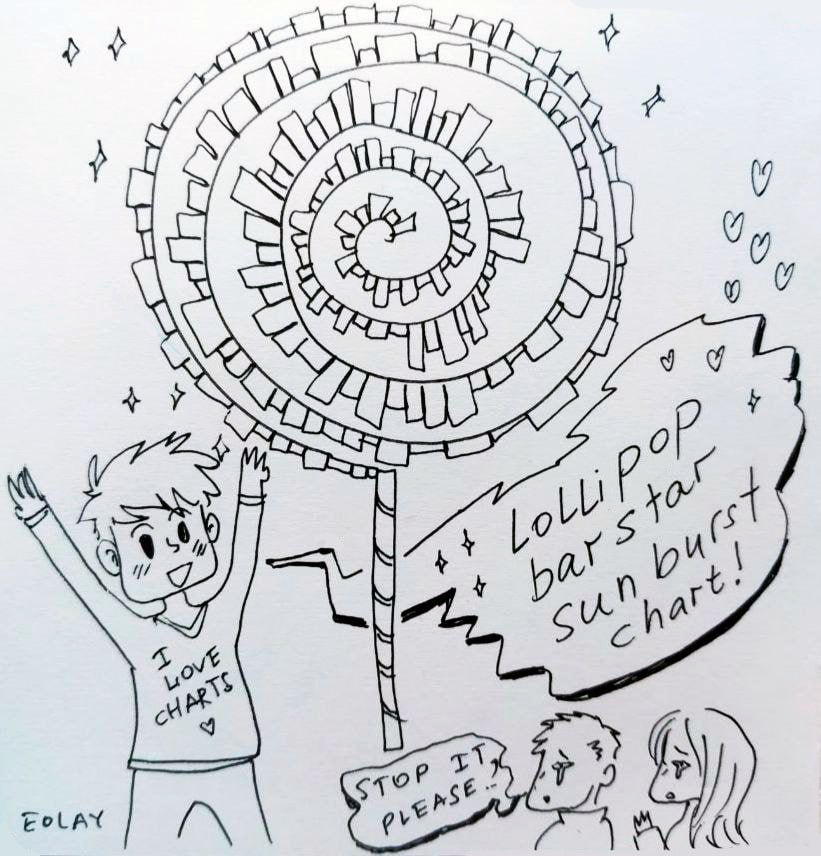 Lollipop
bar star
sun burst
chart!
I
LOVE
CHARTS
STOP IT,
PLEASE..
EOLAY